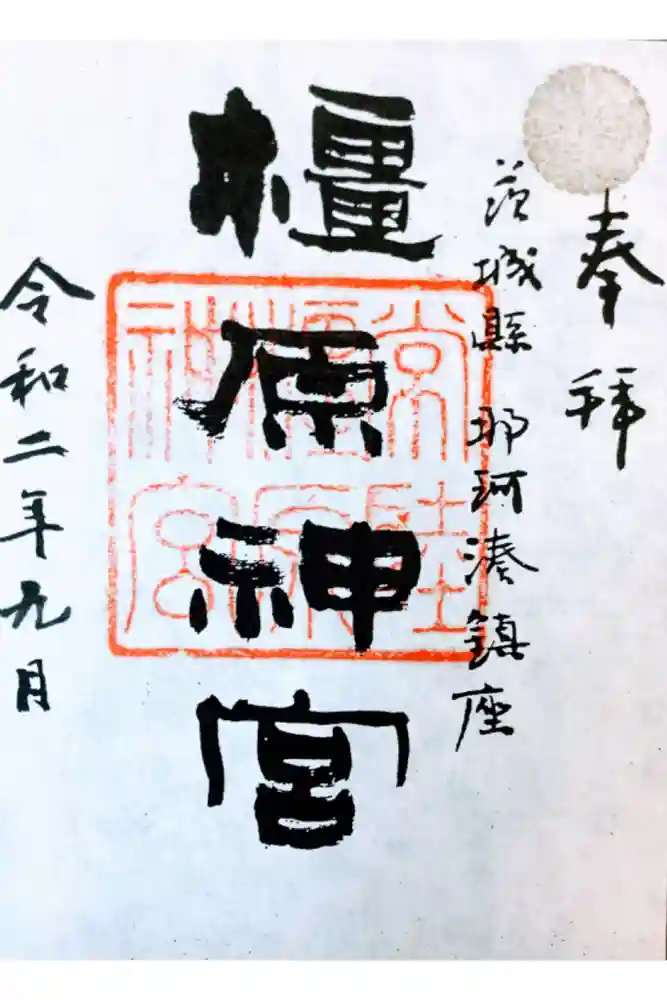 奉拜
茨城縣 那珂湊鎮座
橿原神宮
常陸
橿原
神宮
令和二年九月